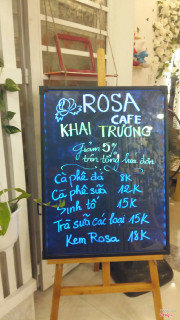 ROSA
CAFE
KHAI TRƯƠNG
Giảm 5%
trên tổng hóa đơn
Cà phê đá 8K
Cà phê sữa 12K
Sinh tố 15K
Trà sữa các loại 15K
Kem Rosa 18K